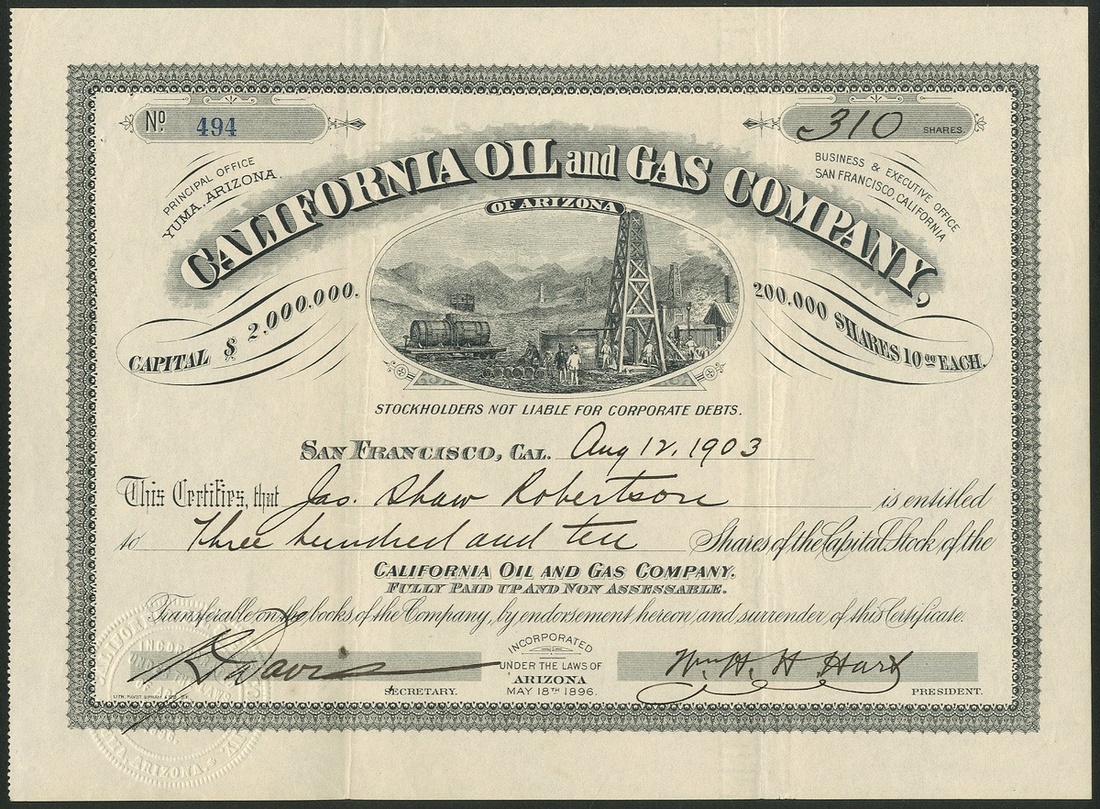 No. 494
310 SHARES.
PRINCIPAL OFFICE
YUMA, ARIZONA.
BUSINESS & EXECUTIVE OFFICE
SAN FRANCISCO, CALIFORNIA
CALIFORNIA OIL and GAS COMPANY,
OF ARIZONA
CAPITAL $ 2.000.000.
200.000 SHARES 10.00 EACH.
STOCKHOLDERS NOT LIABLE FOR CORPORATE DEBTS.
SAN FRANCISCO, CAL. Aug 12, 1903
This Certifies, that Jas. Shaw Robertson is entitled
to Three hundred and ten Shares of the Capital Stock of the
CALIFORNIA OIL AND GAS COMPANY.
FULLY PAID UP AND NON ASSESSABLE.
Transferable on the books of the Company, by endorsement hereon and surrender of this Certificate.
Davis
SECRETARY.
INCORPORATED
UNDER THE LAWS OF
ARIZONA
MAY 18TH 1896.
Wm H. H. Hart
PRESIDENT.
ARIZONA